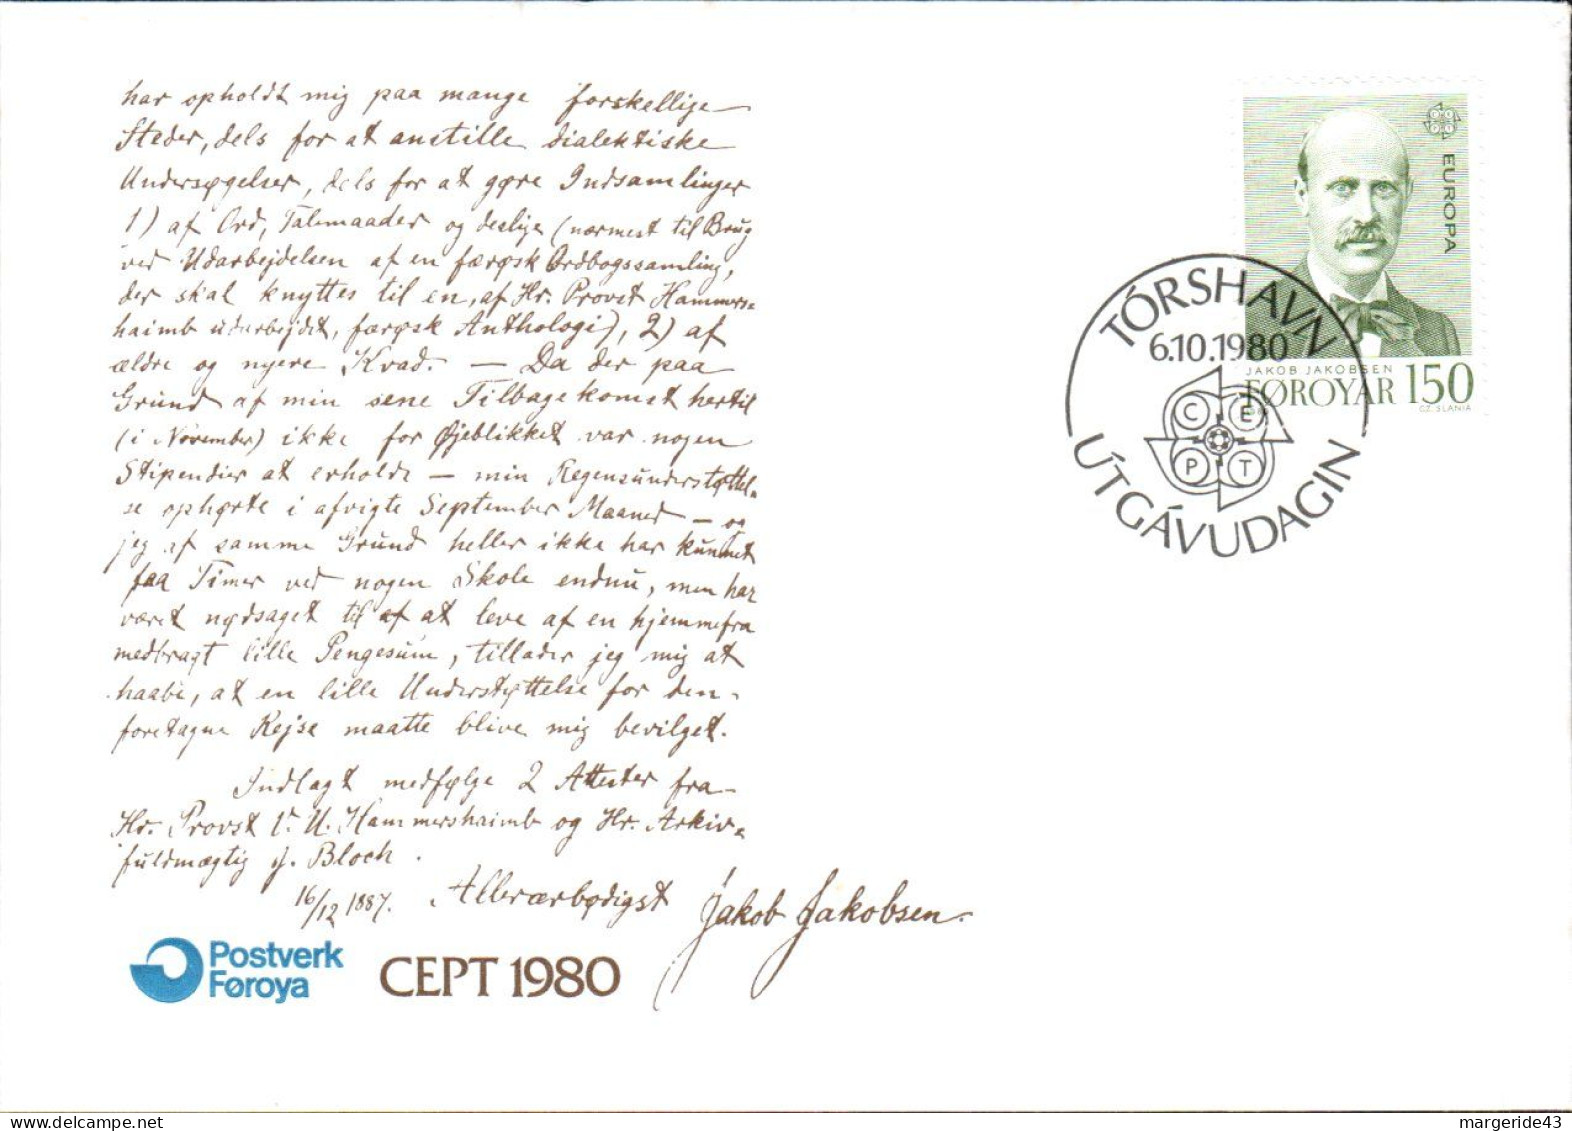 har opholdt mig paa mange forskellige
Steder, dels for at anstille dialektiske
Undersøgelser, dels for at gøre Indsamlinger
1) af Ord, Talemaader og deslige (nærmest til Brug
ved Udarbejdelsen af en færøsk Ordbogssamling,
der skal knyttes til en, af Hr. Provst Hammers-
haimb udarbejdet, færøsk Anthologi), 2) af
ældre og nyere Kvad. — Da der paa
Grund af min sene Tilbagekomst hertil
(i November) ikke for Øjeblikket var nogen
Stipendier at erholde — min Regensunderstøttel-
se ophørte i afvigte September Maaned — og
jeg af samme Grund heller ikke har kunnet
faa Timer ved nogen Skole endnu, men har
været nødsaget til af at leve af en hjemmefra
medbragt lille Pengesum, tillader jeg mig at
haabe, at en lille Understøttelse for den
foretagne Rejse maatte blive mig bevilget.
Indlagt medfølge 2 Attester fra
Hr. Provst V. U. Hammershaimb og Hr. Arkiv-
fuldmægtig J. Bloch.
16/12 1887. Allerærbødigst Jakob Jakobsen.
Postverk
Føroya
CEPT 1980
EUROPA
JAKOB JAKOBSEN
FØROYAR 150
1980
CZ. SLANIA
TÓRSHAVN
6.10.1980
C E P T
ÚTGÁVUDAGIN
margeride43